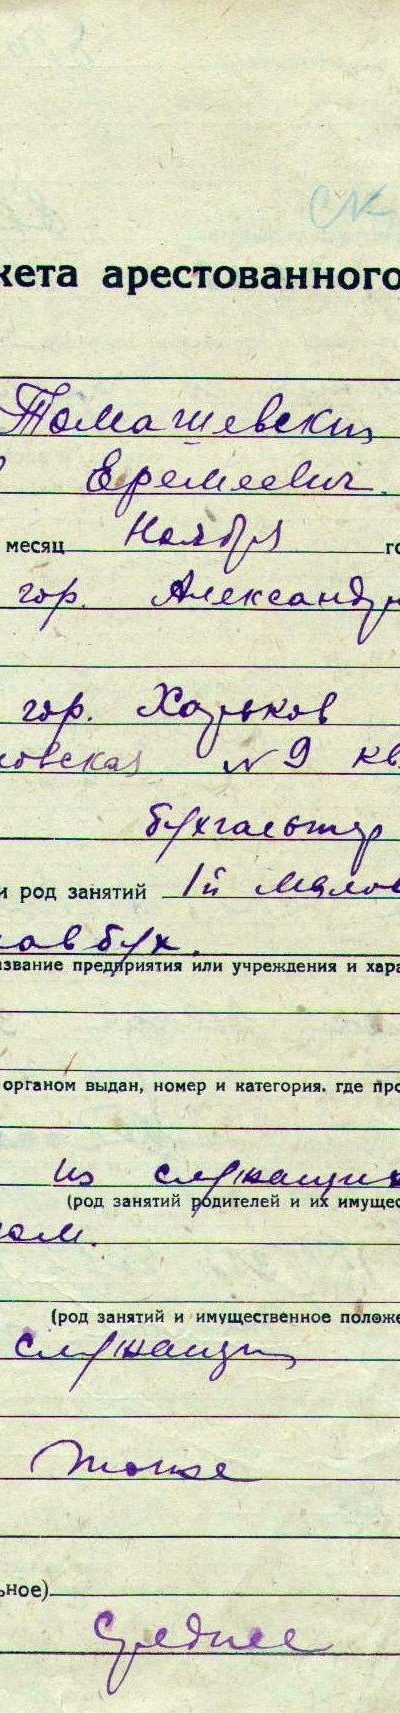 кета арестованного
Томашевский
Еремеевич.
месяц Ноября го
гор. Александр
гор. Харьков
новская №9 кв
бухгалтер
и род занятий 1й
главбух.
азвание предприятия или учреждения и хара
органом выдан, номер и категория. где про
из служащих
(род занятий родителей и их имущес
(род занятий и имущественное положе
служащий
тоже
ьное)
Среднее